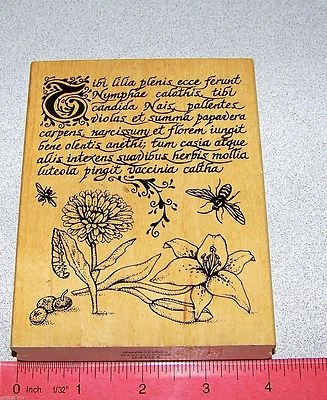 Tibi lilia plenis ecce ferunt
Nymphae calathis, tibi
candida Nais, pallentes
violas et summa papavera
carpens, narcissum et florem iungit
bene olentis anethi; tum casia atque
aliis intexens suavibus herbis mollia
luteola pingit vaccinia caltha
0 Inch 1/32" 1 2 3 4